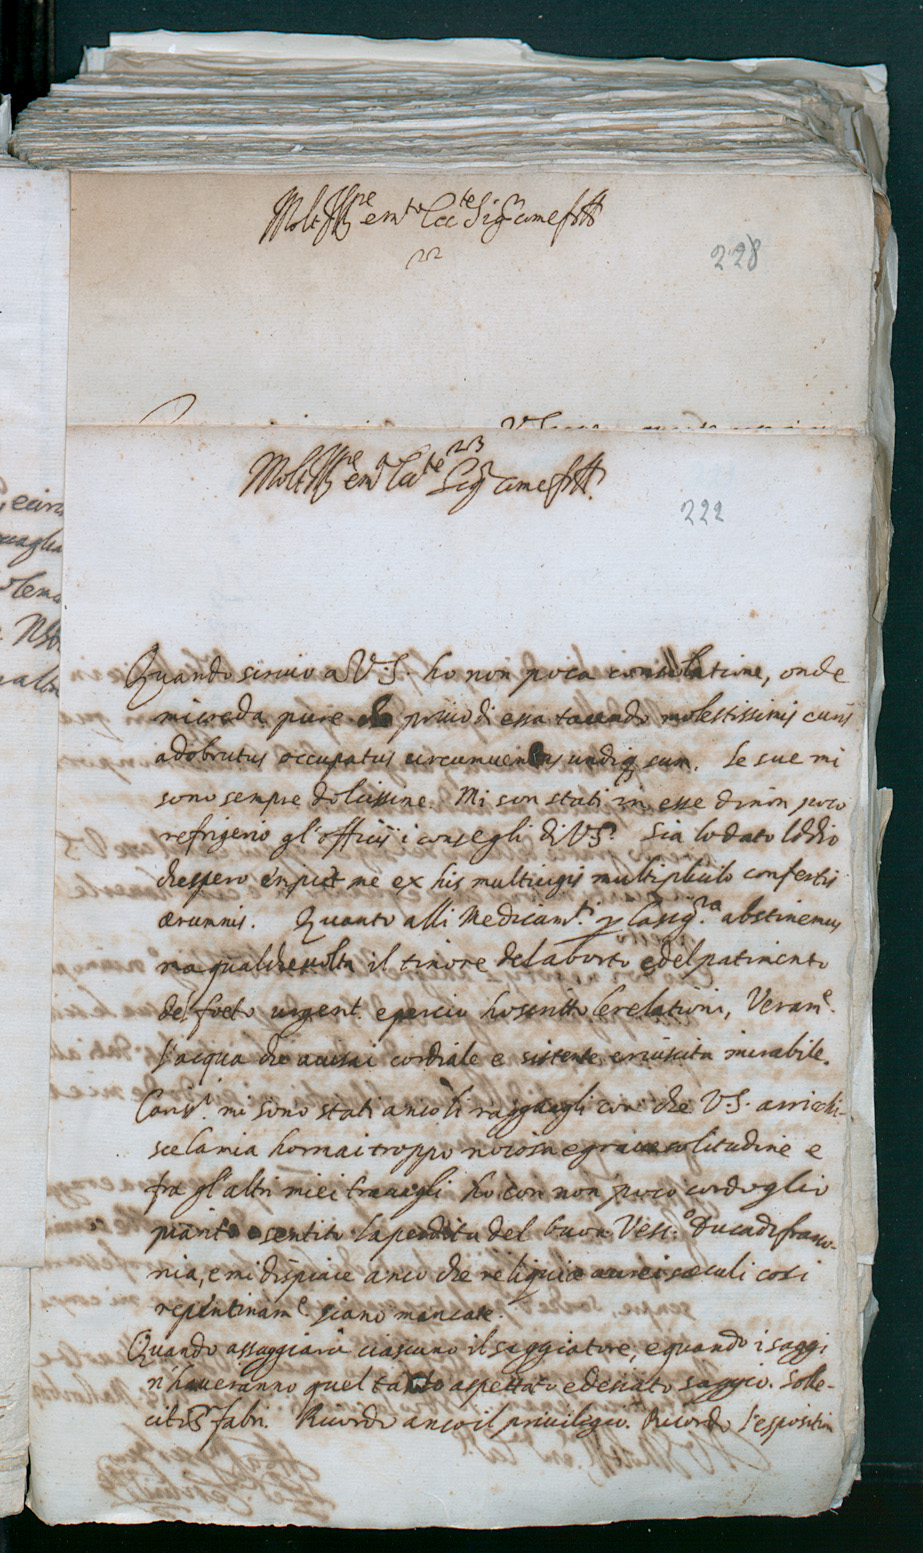 Molt Ill.re e m.to Ecc.te Sig.r mio e frãt
22
228
23
Molt Ill.re e m.to Ecc.te Sig.r mio e frãt.
222
Quando scrivo a V.S. ho non poca consolatione, onde
mi creda pure priuo di essa tacendo molestissimis curis
adobrutus occupatus circumuentus undiq sum. Le sue mi
sono sempre dolcissime. Mi son stati in esse di non poco
refrigerio gl'officii i consegli di V.S.ª Sia lodato Iddio
che spero eripiet me ex his multiiugis multiplicibo confertis
ærumnis. Quanto alli Medicam.ti p la sig.ra abstinemus
ma qualche volta il timore del aborto e del patimento
del foeto urgent. e perciò ho scritto le relationi, Veram.e
l'acqua che auisai cordiale e sistente e riuscita mirabile.
Cariss.i mi sono stati anco li ragguagli con che V.S. arrichi-
sce la mia hormai troppo noiosa e graue solitudine e
fra gl'altri miei trauagli ho con non poco cordoglio
pianto e sentito la perdita del buon Vesc.o Duca di franco-
nia, e mi dispiace anco che reliquie aurei sæculi cosi
repentinam.e siano mancate.
Quando assaggiarà ciascuno il saggiatore, e quando i saggi
n'haueranno quel tanto aspettato e desiato saggio. Solle-
citi S.r fabri. Ricordo anco il priuilegio. Ricordo l'espositiõ